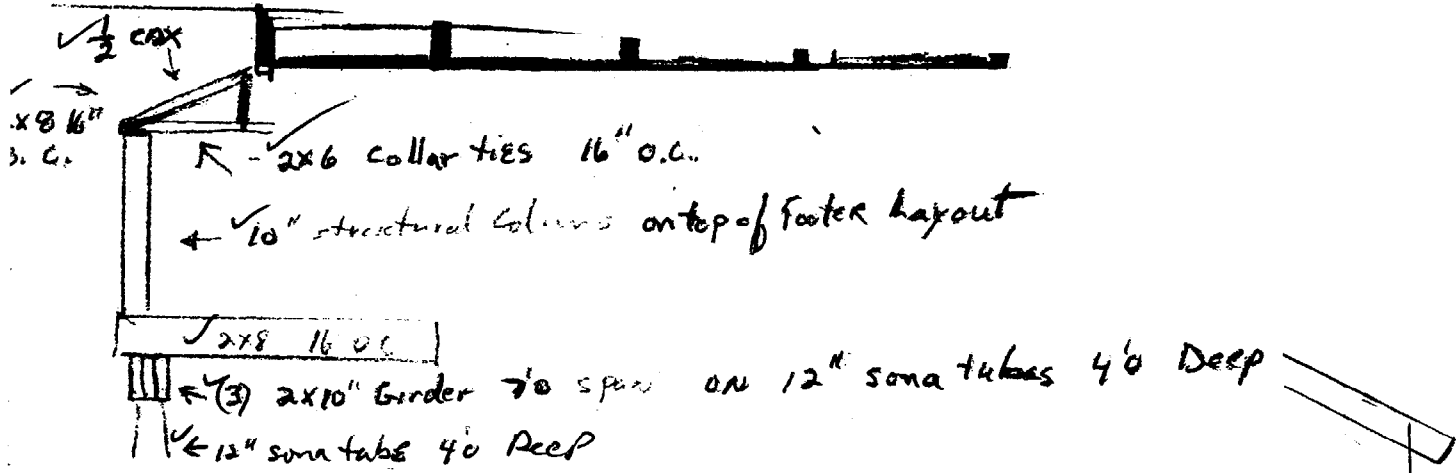 ✓ 1/2 CDX
x8 16"
O.C.
- ✓ 2x6 Collar ties 16" O.C.
← ✓ 10" structural Column on top of Footer Layout
✓ 2x8 16 OC
← ✓ (3) 2x10" Girder 7'0 span ON 12" sona tubes 4'0 Deep
✓ ← 12" sona tube 4'0 Deep